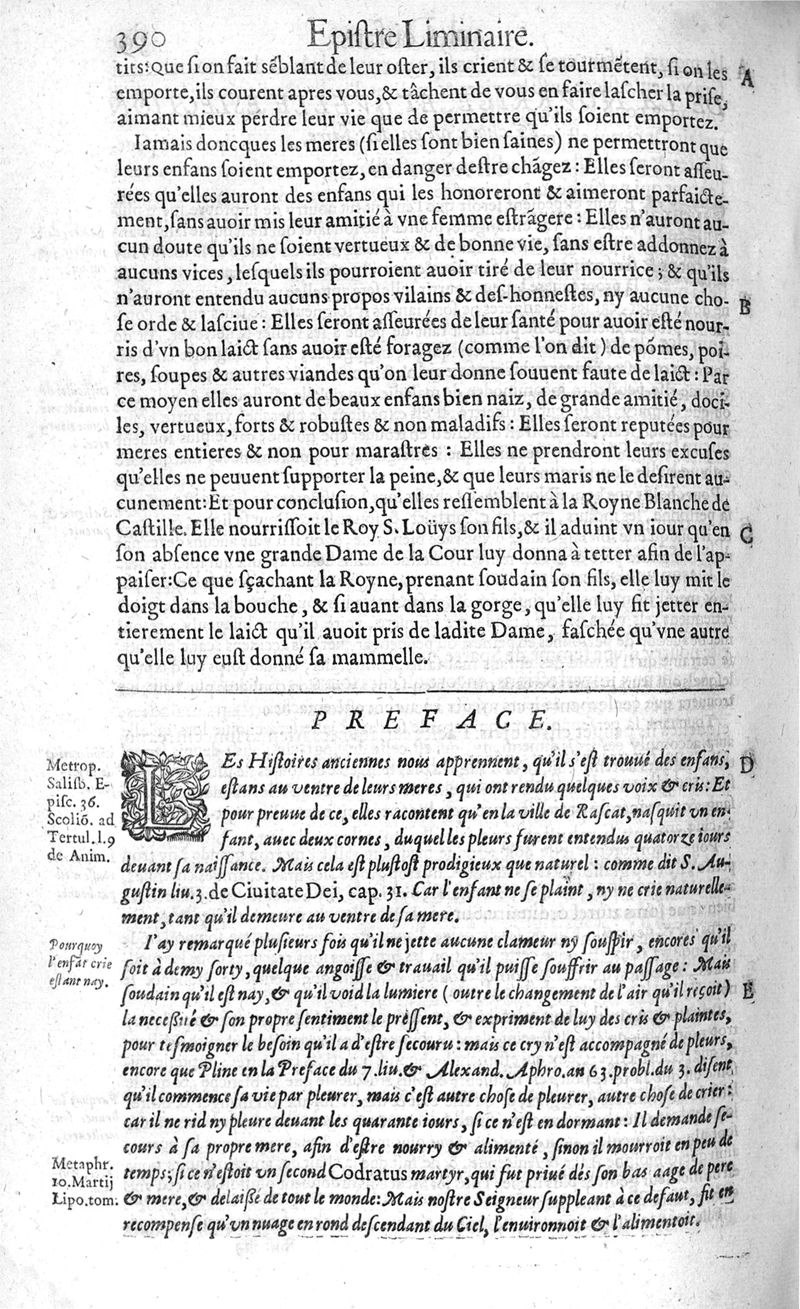 390 Epiſtre Liminaire.
tits: Que ſi on fait sẽblant de leur oſter, ils crient & ſe tourmẽtent, ſi on les
A
emporte, ils courent apres vous, & tâchent de vous en faire laſcher la priſe,
aimant mieux perdre leur vie que de permettre qu'ils ſoient emportez.
Iamais doncques les meres (ſi elles ſont bien ſaines) ne permettront que
leurs enfans ſoient emportez, en danger deſtre chãgez: Elles ſeront aſſeu-
rées qu'elles auront des enfans qui les honoreront & aimeront parfaicte-
ment, ſans auoir mis leur amitié à vne femme eſtrãgere: Elles n'auront au-
cun doute qu'ils ne ſoient vertueux & de bonne vie, ſans eſtre addonnez à
aucuns vices, leſquels ils pourroient auoir tiré de leur nourrice; & qu'ils
n'auront entendu aucuns propos vilains & deſ-honneſtes, ny aucune cho-
B
ſe orde & laſciue: Elles ſeront aſſeurées de leur ſanté pour auoir eſté nour-
ris d'vn bon laict ſans auoir eſté foragez (comme l'on dit) de põmes, poi-
res, ſoupes & autres viandes qu'on leur donne ſouuent faute de laict: Par
ce moyen elles auront de beaux enfans bien naiz, de grande amitié, doci-
les, vertueux, forts & robuſtes & non maladifs: Elles ſeront reputées pour
meres entieres & non pour maraſtres: Elles ne prendront leurs excuſes
qu'elles ne peuuent ſupporter la peine, & que leurs maris ne le deſirent au-
cunement: Et pour concluſion, qu'elles reſſemblent à la Royne Blanche de
Caſtille. Elle nourriſſoit le Roy S. Loüys ſon fils, & il aduint vn iour qu'en
C
ſon abſence vne grande Dame de la Cour luy donna à tetter afin de l'ap-
paiſer: Ce que ſçachant la Royne, prenant ſoudain ſon fils, elle luy mit le
doigt dans la bouche, & ſi auant dans la gorge, qu'elle luy fit jetter en-
tierement le laict qu'il auoit pris de ladite Dame, faſchée qu'vne autre
qu'elle luy euſt donné ſa mammelle.
PREFACE.
Metrop.
Salisb. E-
piſc. 36.
Scoliõ. ad
Tertul. l. 9
de Anim.
LEs Hiſtoires anciennes nous apprennent, qu'il s'eſt trouué des enfans,
D
eſtans au ventre de leurs meres, qui ont rendu quelques voix & cris: Et
pour preuue de ce, elles racontent qu'en la ville de Raſcat, naſquit vn en-
fant, auec deux cornes, duquel les pleurs furent entendus quatorze iours
deuant ſa naiſſance. Mais cela eſt pluſtoſt prodigieux que naturel: comme dit S. Au-
guſtin liu. 3. de Ciuitate Dei, cap. 31. Car l'enfant ne ſe plaint, ny ne crie naturelle-
ment, tant qu'il demeure au ventre de ſa mere.
Pourquoy
l'enfãt crie
eſtant nay.
I'ay remarqué pluſieurs fois qu'il ne jette aucune clameur ny ſouſpir, encores qu'il
ſoit à demy ſorty, quelque angoiſſe & trauail qu'il puiſſe ſouffrir au paſſage: Mais
ſoudain qu'il eſt nay, & qu'il void la lumiere (outre le changement de l'air qu'il reçoit)
E
la neceſſité & ſon propre ſentiment le preſſent, & expriment de luy des cris & plaintes,
pour teſmoigner le beſoin qu'il a d'eſtre ſecouru: mais ce cry n'eſt accompagné de pleurs,
encore que Pline en la Preface du 7. liu. & Alexand. Aphro. an 63. probl. du 3. diſent
qu'il commence ſa vie par pleurer, mais c'eſt autre choſe de pleurer, autre choſe de crier:
car il ne rid ny pleure deuant les quarante iours, ſi ce n'eſt en dormant: Il demande ſe-
cours à ſa propre mere, afin d'eſtre nourry & alimenté, ſinon il mourroit en peu de
Metaphr.
10. Martij
Lipo. tom.
temps; ſi ce n'eſtoit vn ſecond Codratus martyr, qui fut priué dés ſon bas aage de pere
& mere, & delaiſſé de tout le monde: Mais noſtre Seigneur ſuppleant à ce defaut, fit en
recompenſe qu'vn nuage en rond deſcendant du Ciel, l'enuironnoit & l'alimentoit.